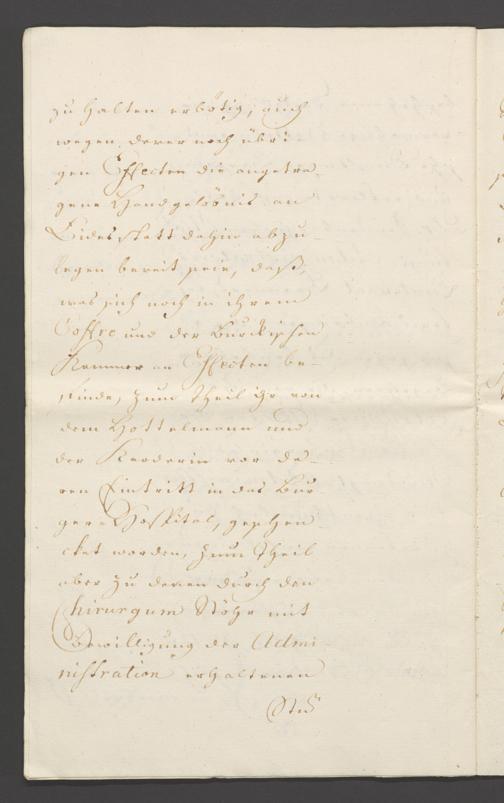 zu halten erbötig, auch
wegen derer noch übri-
gen Effecten die angetra-
gene Handgelöbnis an
Eides statt dahin abzu-
legen bereit seie, daß,
was sich noch in ihrem
Coffre und der Burckischen
Kammer an Effecten be-
finde, zum Theil ihr von
dem Hottelmann und
der Karderin vor de-
ren Eintritt in das Bur-
gere Hospital, geschen
cket worden, zum Theil
aber zu denen durch den
Chirurgum Stöhr mit
Bewilligung der Admi-
nistration erhaltenen